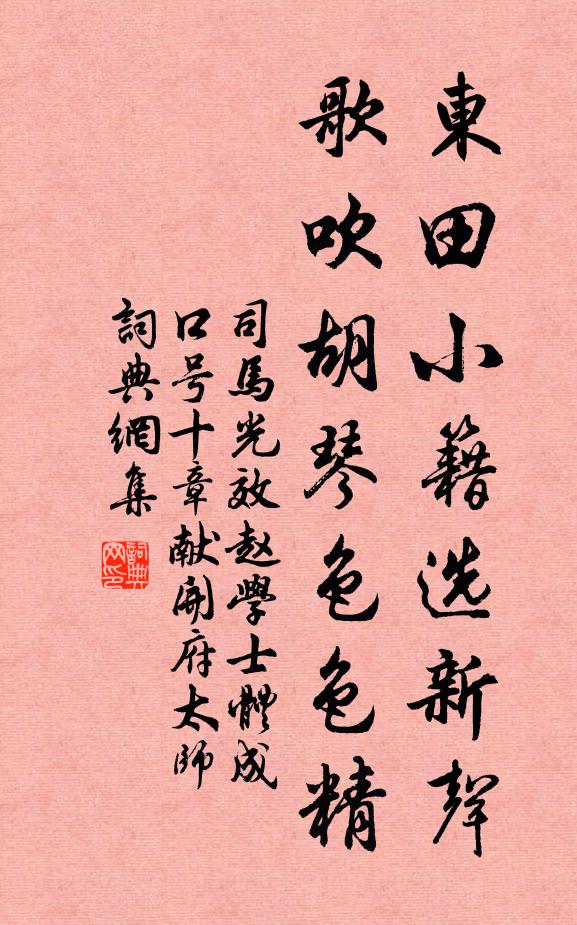 東田小籍选新聲
歌吹胡琴色色精
司馬光效赵學士體成
口号十章献開府太師
詞典網集
詞典
网印